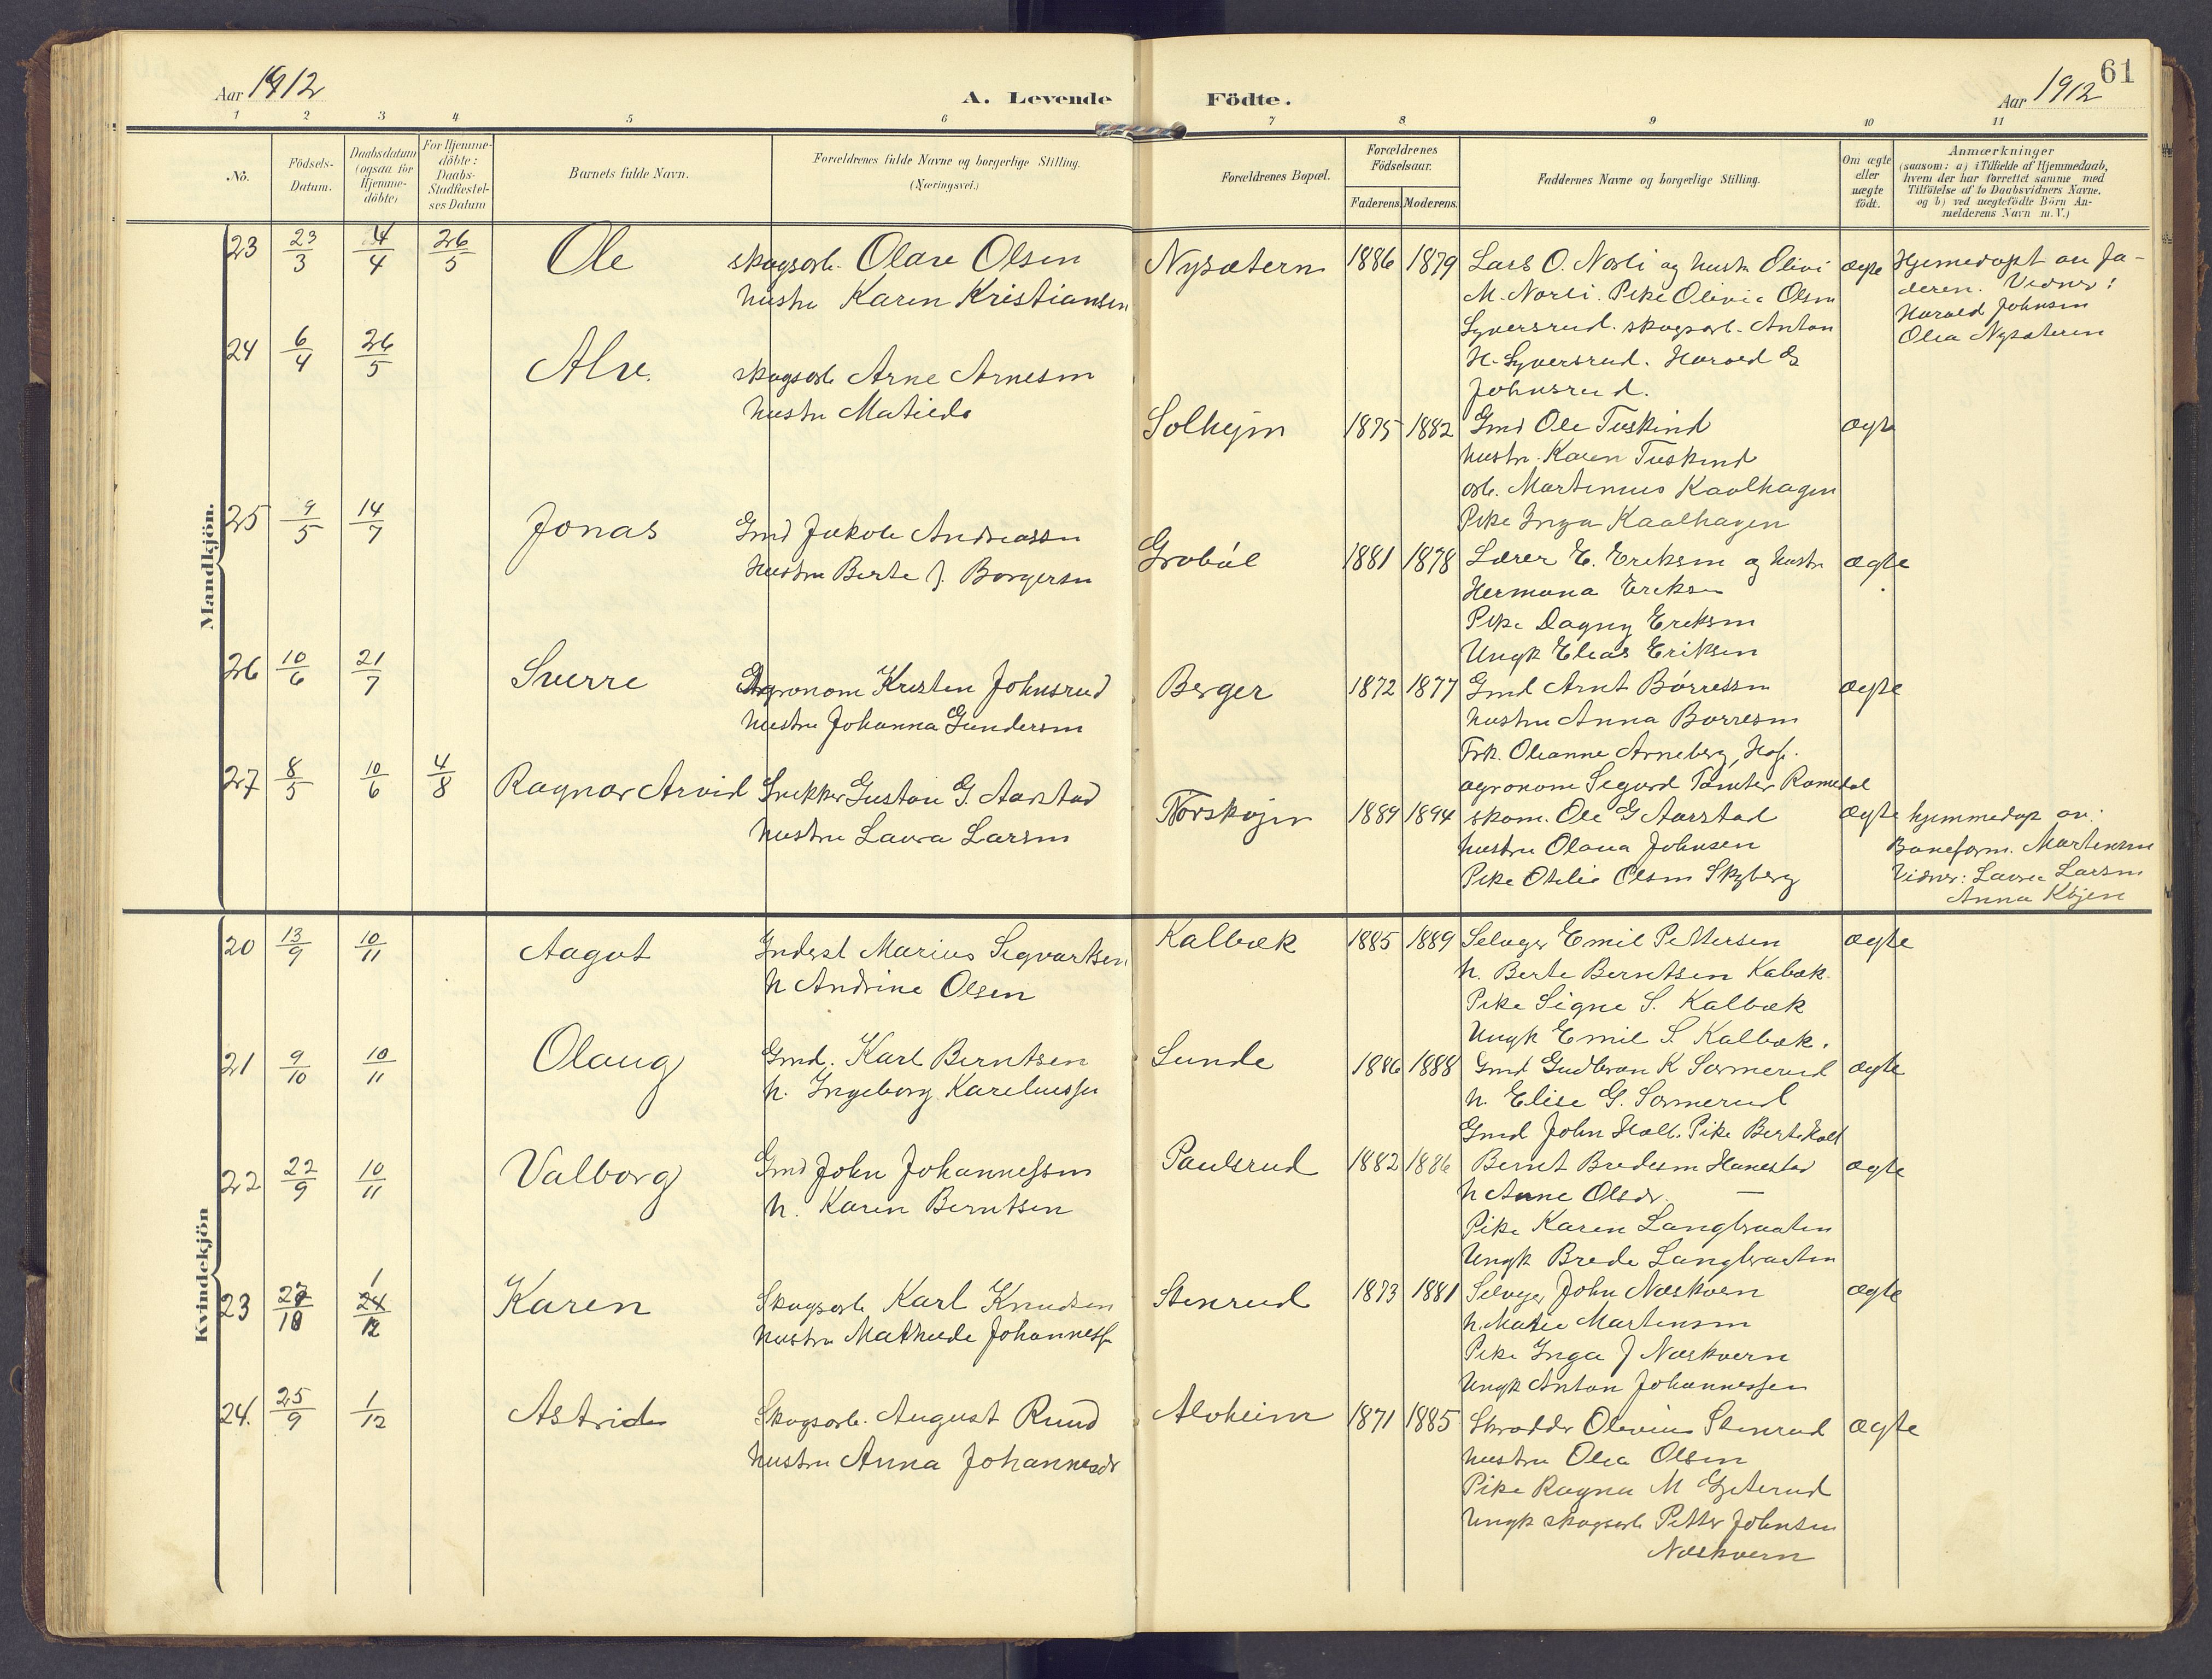 Aar 1912
A. Levende Födte.
Aar 1912
61
1 2 3 4 5 6 7 8 9 10 11
No.
Födsels-
Datum.
Daabsdatum
(ogsaa for
Hjemme-
döbte)
For Hjemme-
döbte:
Daabs-
Stadfæstel-
ses Datum
Barnets fulde Navn.
Forældrenes fulde Navne og borgerlige Stilling.
(Næringsvei.)
Forældrenes Bopæl.
Forældrenes
Födselsaar.
Faderens. Moderens.
Faddernes Navne og borgerlige Stilling.
Om ægte
eller
uægte
födt.
Anmærkninger
(saasom: a) i Tilfælde af Hjemmedaab,
hvem der har forrettet samme med
Tilföielse af to Daabsvidners Navne.
og b) ved uægtefödte Börn An-
melderens Navn m. V.)
Mandkjön.
23 23/3 4/4 26/5 Ole skogsarb. Olave Olsen Nysætern 1886 1879 Lars O. Norli og hustr Olivi ægte Hjemedøpt av fa-
hustru Karen Kristiansen M. Norli. Pike Olivia Olsen deren. Vidner:
Syversrud. skogsarb. Anton Harald Johnsen
H. Syversrud. Harald G Olea Nysæteren
Johnsrud.
24 6/4 26/5 Alv. skogsarb Arne Arnesen
hustru Matilda
Solhejm 1875 1882 Gmd Ole Tuskind ægte
hustr. Karen Tuskind
arb. Martinius Kaalhagen
Pike Inga Kaalhagen
25 9/5 14/7 Jonas Gmd Jakob Andreassen
Hustru Berte J. Borgersen
Grobøl 1881 1878 Lærer E. Eriksen og hustr ægte
Hermana Eriksen
Pike Dagny Eriksen
Ungk Elias Eriksen
26 10/6 21/7 Sverre Agronom Kristen Johnsrud Berger 1872 1877 Gmd Arnt Børresen ægte
hustru Johanna Gundersen hustru Anna Børresen
Frk. Oleanne Arneberg, Hof.
agronom Sigurd Tomter Romedal
27 8/5 10/6 4/8 Ragnar Arvid Snekker Gustav G. Aarstad
hustru Laura Larsen
Norskojen 1889 1894 skom. Ole G Aarstad ægte hjemmedøp av:
hustru Olava Johnsen Baneform. Martinsen
Pike Otilie Olsen Skyberg Vidner: Laura Larsen
Anna Kojen
Kvindekjön
20 13/9 10/11 Aagot Inderst Marius Sigvartsen Kalbæk 1885 1889 Selveger Emil Pettersen ægte
h Andrine Olsen h. Berte Berntsen Kabæk
Pike Signe S. Kalbæk
Ungk Emil S. Kalbæk.
21 9/10 10/11 Olaug Gmd. Karl Berntsen Lunde 1886 1888 Gmd Gudbran K Sormerud ægte
h. Ingeborg h. Elise G. Sormerud
Gmd John Holt. Pike Berte Holt
22 22/9 10/11 Valborg Gmd John Johannessen Paulsrud 1882 1886 Bernt Bredesen Hanestad ægte
h. Karen Berntsen h Anne Olsdr. —
Pike Karen Langbraaten
Ungk Brede Langbraaten
23 10 1/12 Karen Skogsarb Karl Knudsen Stenrud 1873 1881 Selveger John Næskvern ægte
hustru Mathilde Johannessen h. Matie Martensen
Pike Inga J Næskvern
Ungk Anton Johannessen
24. 25/9 1/12 Astrid Skogsarb. August Rund Alvheim 1871 1885 Skrædder Olavius Stenrud ægte
hustru Anna Johannesdr hustru Olea Olsen
Pike Ragna M Gjeterud
Ungk skogsarb Petter Johnsen
Næskvern